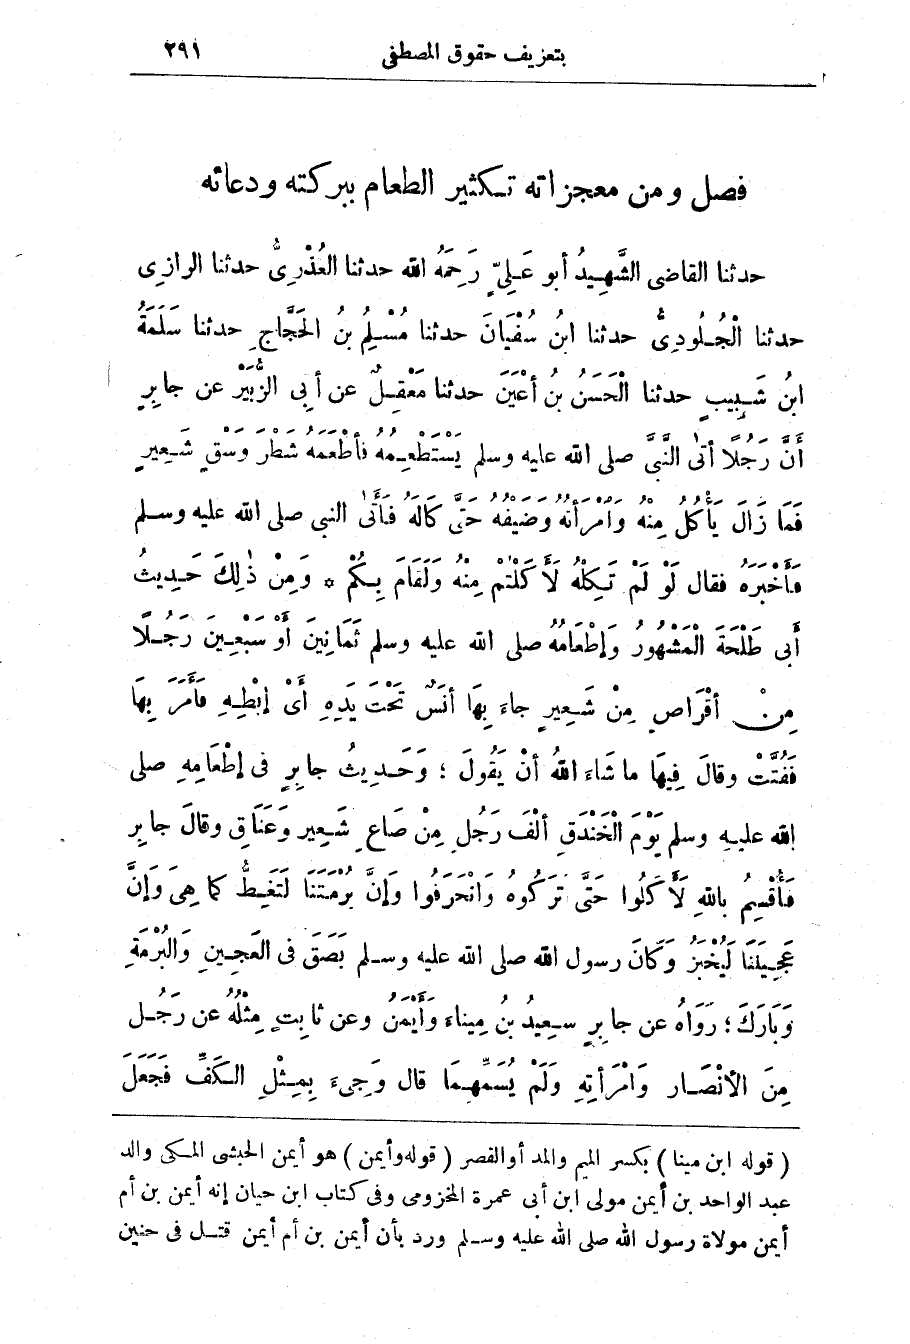 بتعريف حقوق المصطفى ٢٩١
فصل ومن معجزاته تكثير الطعام ببركته ودعائه
حدثنا القاضى الشَّهِيدُ أبو عَلِىٍّ رَحِمَهُ الله حدثنا العُذْرِىُّ حدثنا الرازِى
حدثنا الْجُلُودِىُّ حدثنا ابنُ سُفْيَانَ حدثنا مُسْلِمُ بنُ الحَجَّاجِ حدثنا سَلَمَةُ
ابنُ شَبِيبٍ حدثنا الْحَسَنُ بنُ أَعْيَنَ حدثنا مَعْقِلٌ عن أبى الزُّبَيْرِ عن جابِرٍ
أَنَّ رَجُلًا أتَى النَّبِىَّ صلى الله عليه وسلم يَسْتَطْعِمُهُ فأطْعَمَهُ شَطْرَ وَسْقِ شَعِيرٍ
فَمَا زَالَ يَأْكُلُ مِنْهُ وَامْرَأَتُهُ وَضَيْفُهُ حَتَّى كَالَهُ فَأَتَى النبى صلى الله عليه وسلم
فَأَخْبَرَهُ فقال لَوْ لَمْ تَكِلْهُ لَأَكَلْتُمْ مِنْهُ وَلَقَامَ بِكُمْ * وَمِنْ ذٰلِكَ حَدِيثُ
أَبى طَلْحَةَ الْمَشْهُورُ وَإِطْعَامُهُ صلى الله عليه وسلم ثَمَانِينَ أَوْ سَبْعِينَ رَجُلًا
مِنْ أَقْرَاصٍ مِنْ شَعِيرٍ جاءَ بِهَا أَنَسٌ تَحْتَ يَدِهِ أَىْ إِبْطِهِ فَأَمَرَ بِهَا
فَفُتَّتْ وقالَ فِيهَا ما شَاءَ اللهُ أَنْ يَقُولَ ؛ وَحَدِيثُ جابِرٍ فى إطْعَامِهِ صلى
الله عليه وسلم يَوْمَ الْخَنْدَقِ أَلْفَ رَجُلٍ مِنْ صَاعِ شَعِيرٍ وَعَنَاقٍ وقالَ جابِر
فَأُقْسِمُ بِاللهِ لَأَكَلُوا حَتَّى تَرَكُوهُ وَانْحَرَفُوا وَإِنَّ بُرْمَتَنَا لَتَغِطُّ كما هِىَ وَإِنَّ
عَجِينَنَا لَيُخْبَزُ وَكَانَ رسول الله صلى الله عليه وسلم بَصَقَ فى العَجِينِ وَالْبُرْمَةِ
وَبَارَكَ ؛ رَوَاهُ عن جابِرٍ سعِيدُ بنُ مِيناءَ وَأَيْمَنُ وعن ثابِتٍ مِثْلُهُ عن رَجُلٍ
مِنَ الأَنْصَارِ وَامْرَأَتِهِ وَلَمْ يُسَمِّهِمَا قال وَجِىءَ بِمِثْلِ الكَفِّ فَجَعَلَ
( قوله ابن مينا ) بكسر الميم والمد أوالقصر ( قوله وأيمن ) هو أيمن الحبشى المكى والد
عبد الواحد بن أيمن مولى ابن أبى عمرة المخزومى وفى كتاب ابن حيان إنه أيمن بن أم
أيمن مولاة رسول الله صلى الله عليه وسلم ورد بأن أيمن بن أم أيمن قتل فى حنين